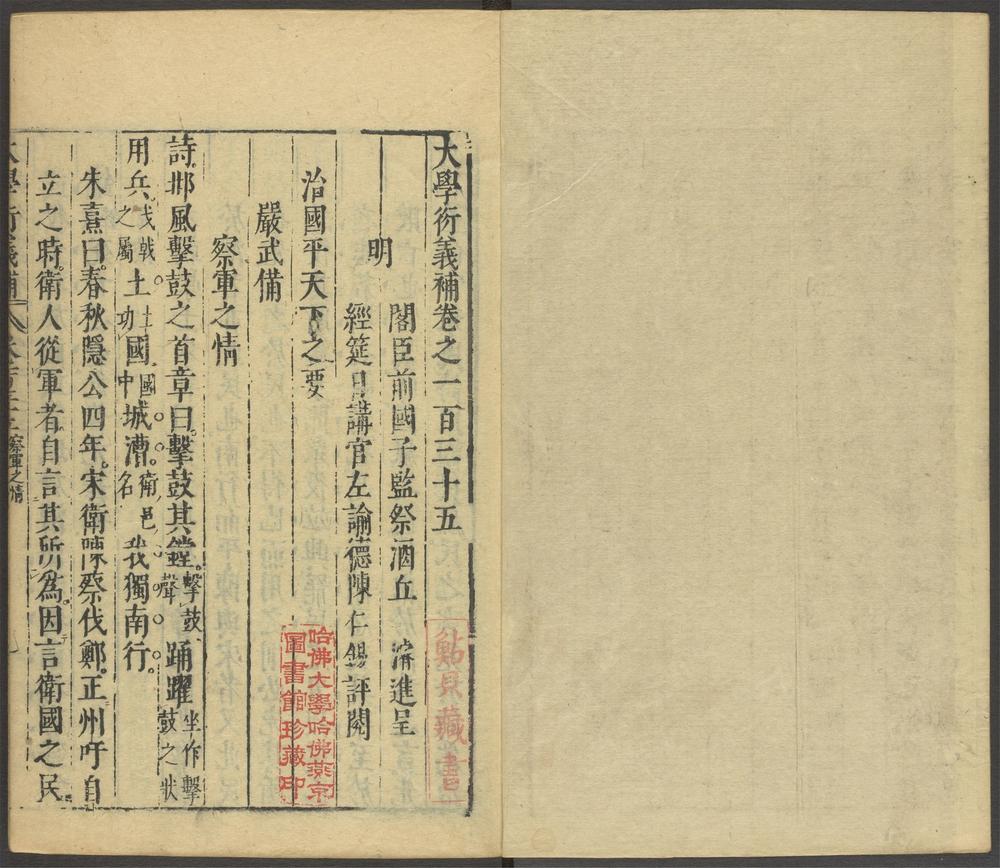 大學衍義補卷之一百三十五
明
閣臣前國子監祭酒丘濬進呈
經筵日講官左諭德陳仁錫評閱
治國平天下之要
嚴武備
察軍之情
詩邶風擊鼓之首章曰擊鼓其鏜擊鼓聲踊躍坐作擊鼓之狀
用兵戈戟之屬土土功國國中城漕衛邑名我獨南行
朱熹曰春秋隱公四年宋衛陳蔡伐鄭正州吁自
立之時衛人從軍者自言其所為因言衛國之民
大學衍義補 察軍之情
哈佛大學哈佛燕京
圖書館珍藏印
藏書